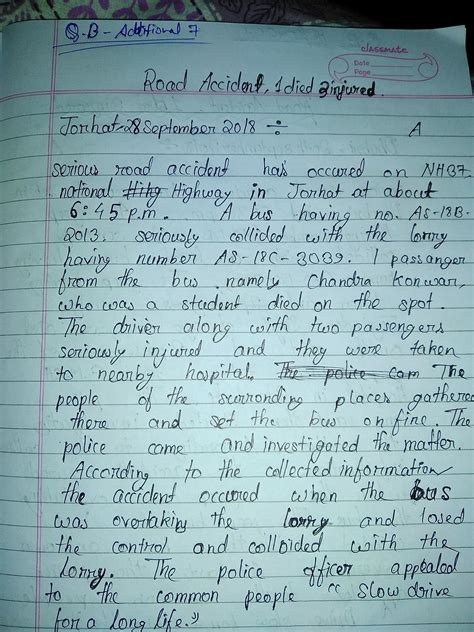 Q.B - Additional 7
classmate
Date
Page
Road Accident, 1 died 3 injured.
Jorhat 28 September 2018 ÷ A
serious road accident has occured on NH37
national Highway in Jorhat at about
6:45 p.m. A bus having no. AS-18B-
2013, seriously collided with the lorry
having number AS-18C-3039. 1 passanger
from the bus namely Chandra Konwar,
who was a student died on the spot.
The driver along with two passengers
seriously injured and they were taken
to nearby hospital. The police cam The
people of the surronding places gathered
there and set the bus on fire. The
police came and investigated the matter.
According to the collected information
the accident occured when the bus
was overtaking the lorry and losed
the control and colloided with the
lorry. The police officer appealed
to the common people "slow drive
for a long life."